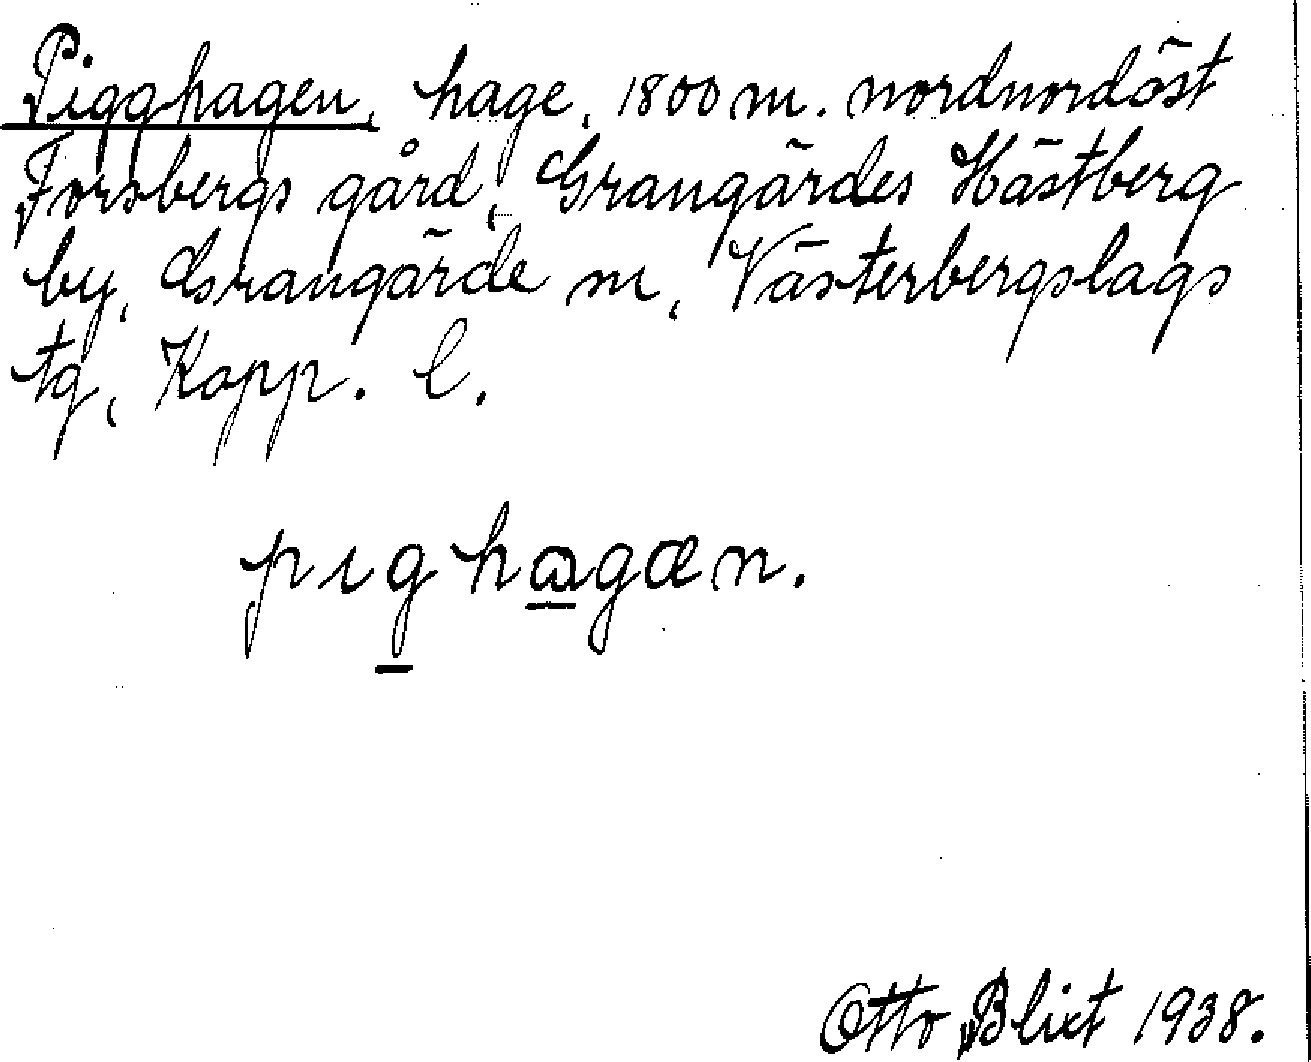 Pigghagen, hage, 1800 m. nordnordöst
Forsbergs gård, Grangärdes Hästberg
by, Grangärde sn, Västerbergslags
tg, Kopp. l.
pıg̲ha̲gæn.
Otto Blixt 1938.